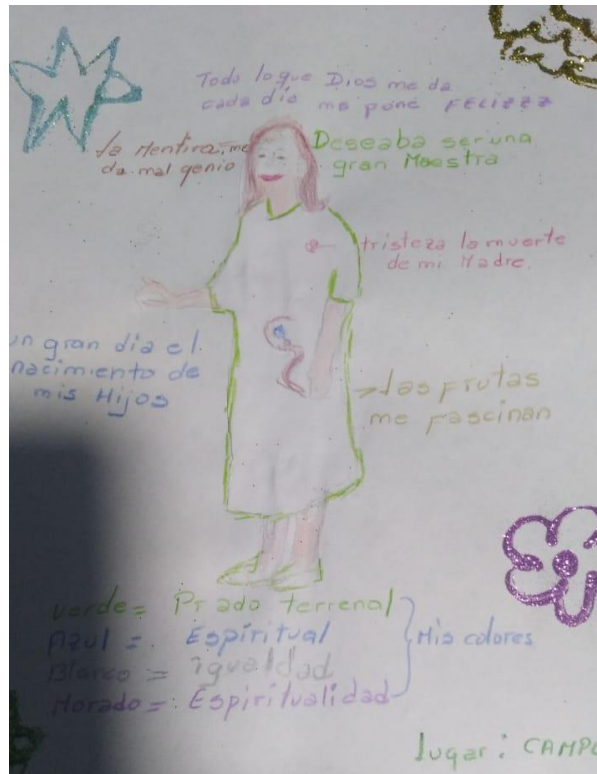 Todo lo que Dios me da
cada día me pone FELIZZZ
la Mentira, me
da mal genio
Deseaba ser una
gran Maestra
tristeza la muerte
de mi Madre.
un gran día el
nacimiento de
mis Hijos
las Frutas
me Fascinan
Verde = Prado terrenal
Azul = Espiritual
Blanco = igualdad
Morado = Espiritualidad
Mis colores
lugar: CAMPO